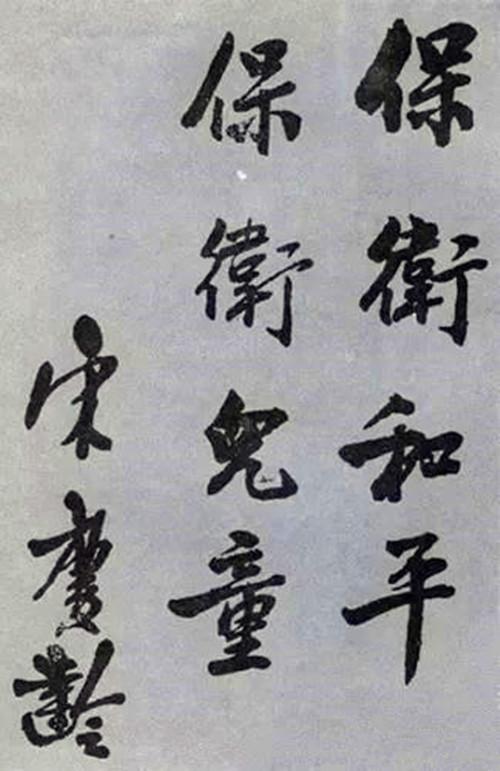 保衛和平
保衛兒童
宋慶齡